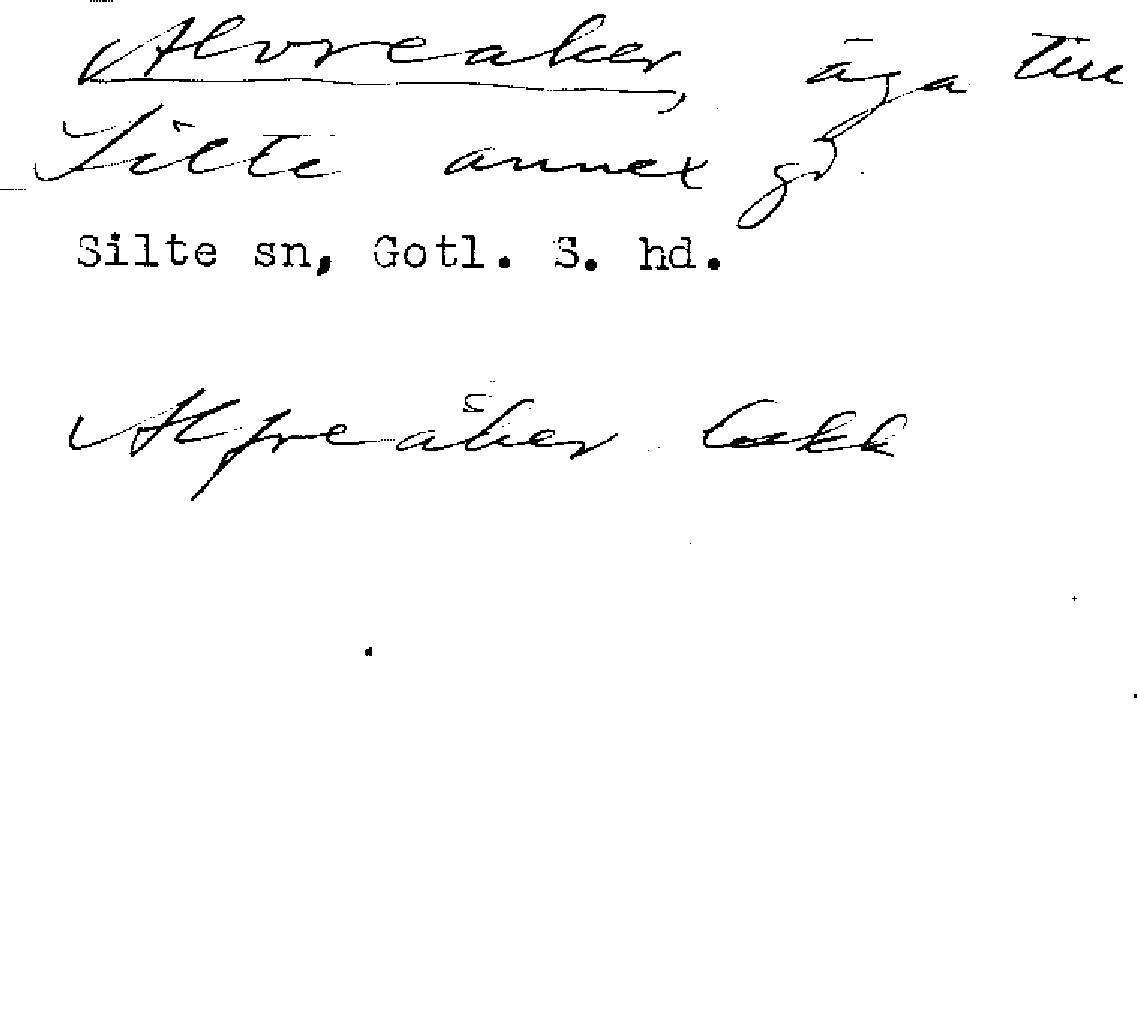 Alvreaker, äga till
Silte annex gd.
Silte sn, Gotl. S. hd.
Alfreåker lukk